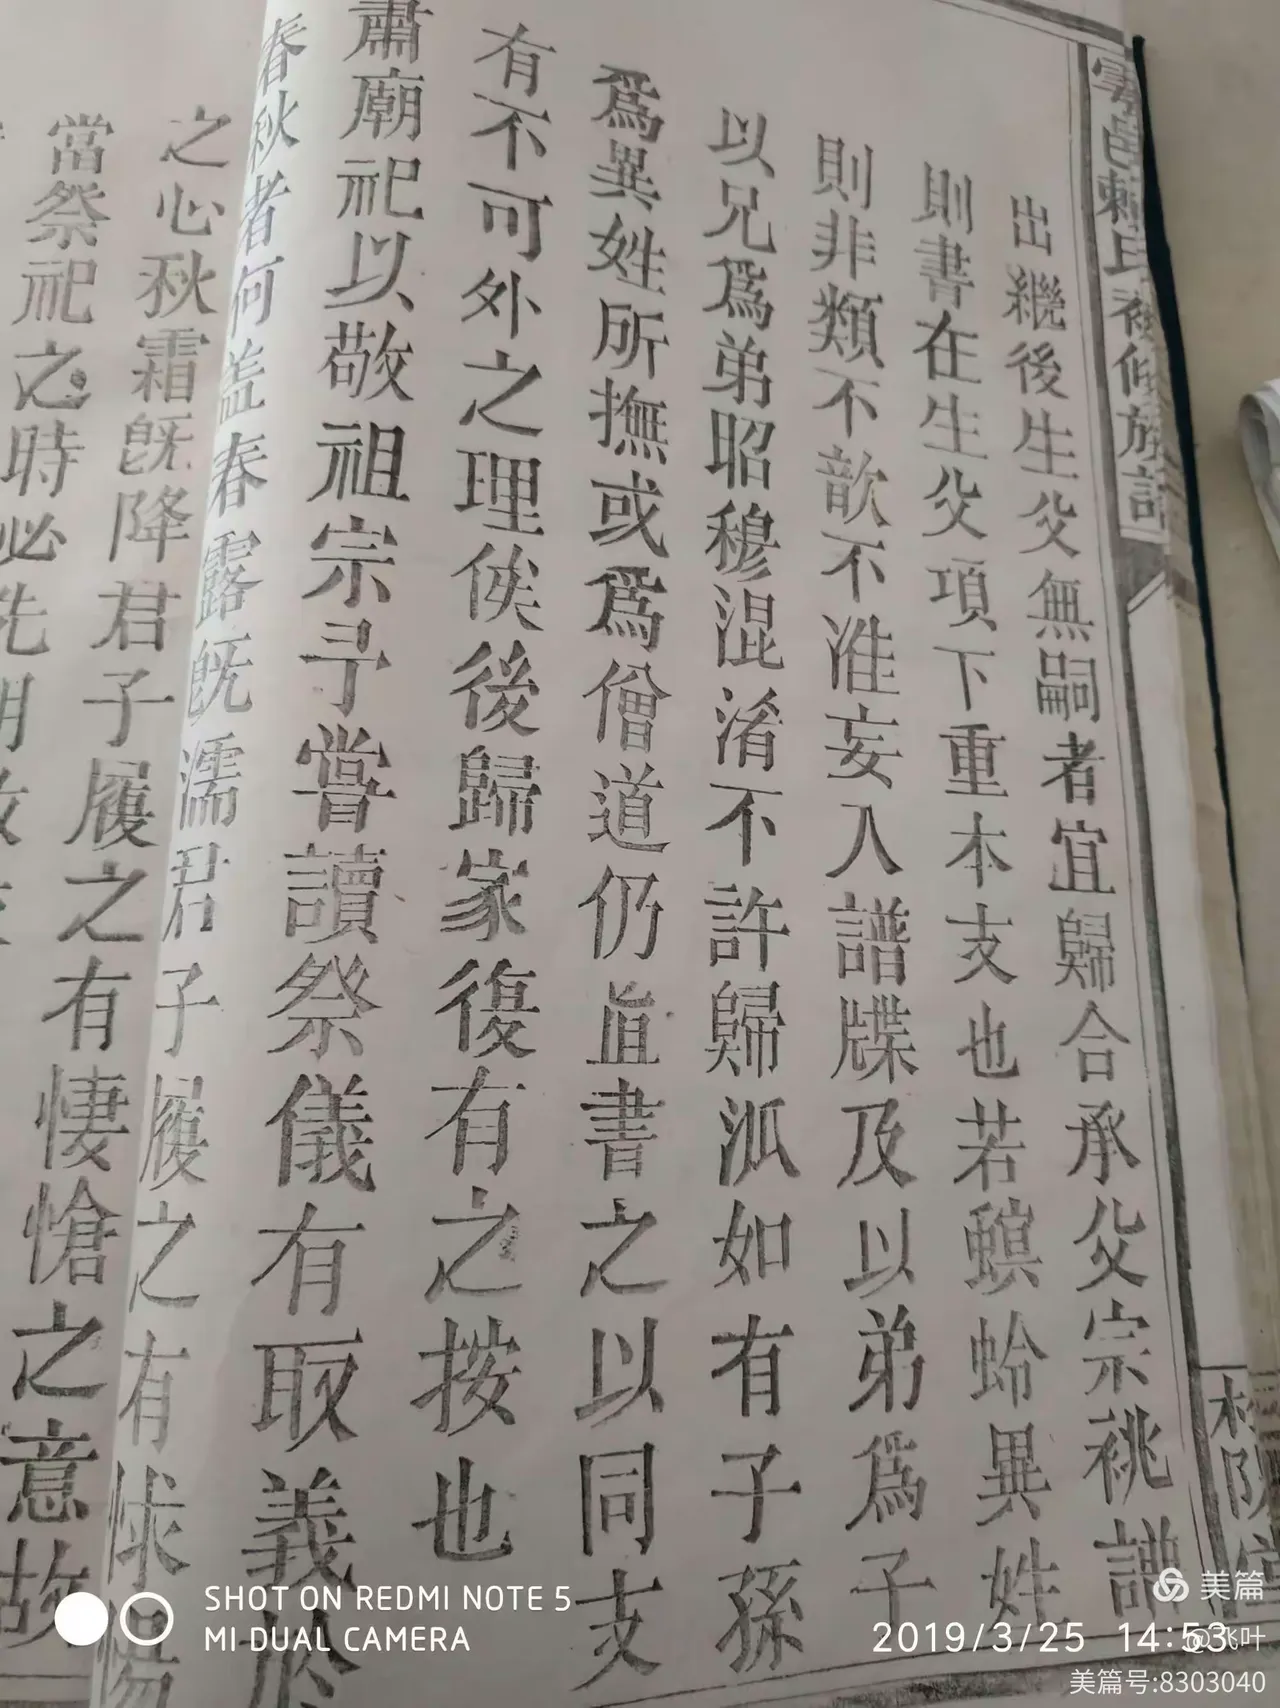 雩邑賴氏
族記
出繼後生父無嗣者宜歸合承父宗祧譜
則書在生父項下重本支也若螟蛉異姓
則非類不歆不准妄入譜牒及以弟爲子
以兄爲弟昭穆混淆不許歸派如有子孫
爲異姓所撫或爲僧道仍直書之以同支
有不可外之理俟後歸家復有之按也
肅廟祀以敬祖宗予嘗讀祭儀有取義於
春秋者何盖春露旣濡君子履之有怵惕
之心秋霜旣降君子履之有悽愴之意故
當祭祀之時必先
SHOT ON REDMI NOTE 5
MI DUAL CAMERA
2019/3/25 14:53
美篇
@飞叶
美篇号:8303040